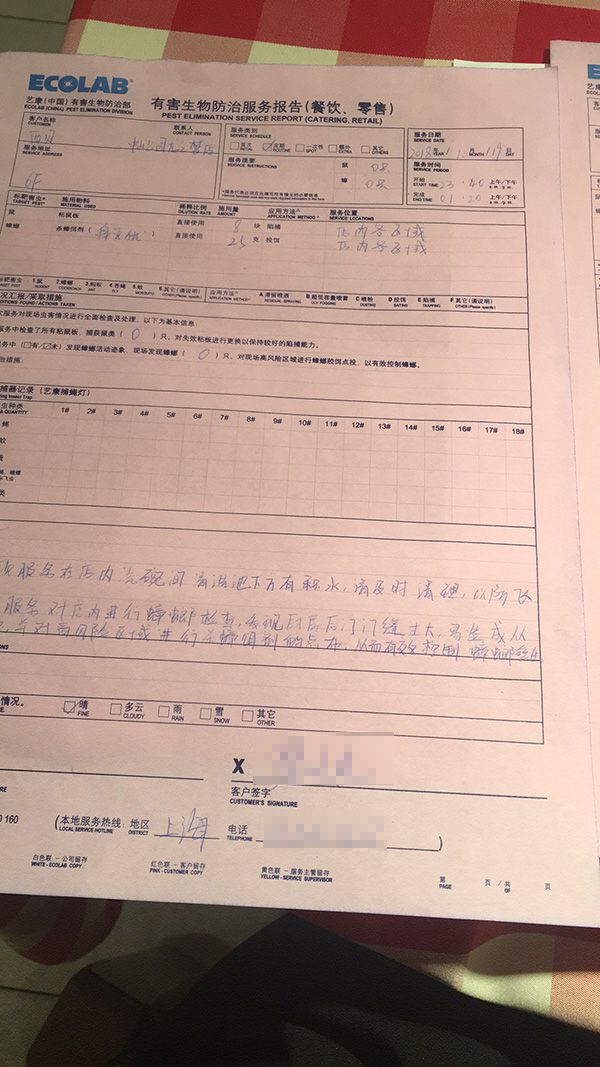 ECOLAB®
艺康(中国)有害生物防治部
ECOLAB (CHINA) PEST ELIMINATION DIVISION
有害生物防治服务报告(餐饮、零售)
PEST ELIMINATION SERVICE REPORT (CATERING, RETAIL)
客户名称
CUSTOMER
联系人
CONTACT PERSON
服务地址
SERVICE ADDRESS
6F
服务类别
SERVICE SCHEDULE
其次 定期 一次性 额外 其它
INITIAL ROUTINE SPOT EXTRA OTHERS
服务提要
SERVICE INSTRUCTIONS
鼠 0只
蟑 0只
服务日期
SERVICE DATE
2018年 YEAR 1月 MONTH 19日 DAY
服务时间
SERVICE PERIOD
开始 上午/下午
START TIME 23:40 a.m./p.m.
完成 上午/下午
END TIME 01:20 a.m./p.m.
标靶害虫* 施用物料 稀释比例 施用量 应用方法^ 服务位置
TARGET PEST* MATERIAL USED DILUTION RATE AMOUNT APPLICATION METHOD^ SERVICE LOCATIONS
鼠 粘鼠板 直接使用 8 块 陷捕 店内各区域
蟑螂 杀蟑饵剂 直接使用 25 克 投饵 店内各区域
标靶害虫 1.鼠 2.蟑螂 3.蚂蚁 4.苍蝇 5.蚊 6.其它(请说明) 应用方法^ A 滞留喷洒 B 超低容量喷雾 C 喷粉 D 投饵 E 陷捕 F 其它(请说明)
TARGET PEST RODENT COCKROACH ANT FLY MOSQUITO OTHER(Please specify) APPLICATION METHOD^ RESIDUAL SPRAYING ULV FOGGING DUSTING BAITING TRAPPING OTHERS (Please specify)
况汇报/采取措施
DITIONS FOUND/ACTIONS TAKEN
次服务对现场虫害情况进行全面检查及处理,以下为基本信息
服务中检查了所有粘鼠板,捕获鼠类(0)只。对失效粘板进行更换以保持较好的陷捕能力。
服务中(□有/☑未)发现蟑螂活动迹象,现场发现蟑螂(0)只。对现场高风险区域进行蟑螂胶饵点投,以有效控制蟑螂。
捕器记录(艺康捕蝇灯)
ring Insect Trap
生种类
& QUANTITY
1# 2# 3# 4# 5# 6# 7# 8# 9# 10# 11# 12# 13# 14# 15# 16# 17# 18#
蝇
蚊
类
服务在店内洗碗间清洗池下方有积水,请及时清理,以防飞
服务对店内进行蟑螂检查,发现后门门缝过大,易造成从
对高风险区域进行杀蟑饵剂的点布,从而有效控制蟑螂
情况。 晴 多云 雨 雪 其它
FINE CLOUDY RAIN SNOW OTHER
X
客户签字
CUSTOMER'S SIGNATURE
0 160
(本地服务热线:地区 上海 电话 )
LOCAL SERVICE HOTLINE DISTRICT TELEPHONE
白色联-公司留存 红色联-客户留存 黄色联-服务主管留存
WHITE-ECOLAB COPY PINK-CUSTOMER COPY YELLOW-SERVICE SUPERVISOR
第 页/共 页
PAGE OF